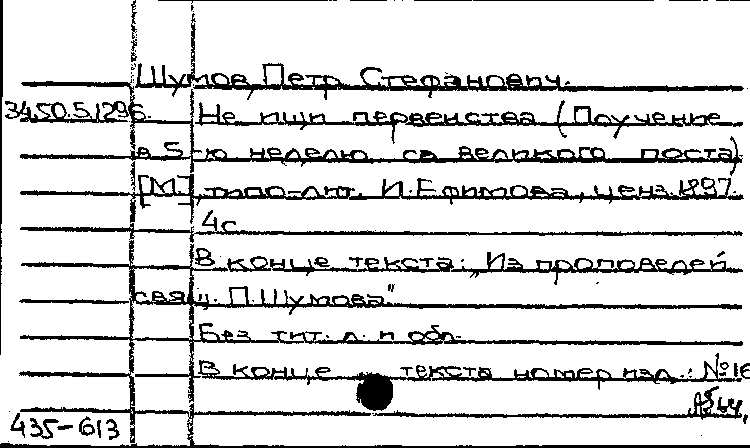 Шумов, Петр Стефанович.
34.50.5/296. Не ищи первенства (Поучение
в 5-ю неделю св великого поста)
[М.], типо-лит. И. Ефимова, ценз. 1897.
4с.
В конце текста: „Из проповедей
свящ. П. Шумова"
Без тит. л. и обл.
В конце текста номер изд.: №16
435-613